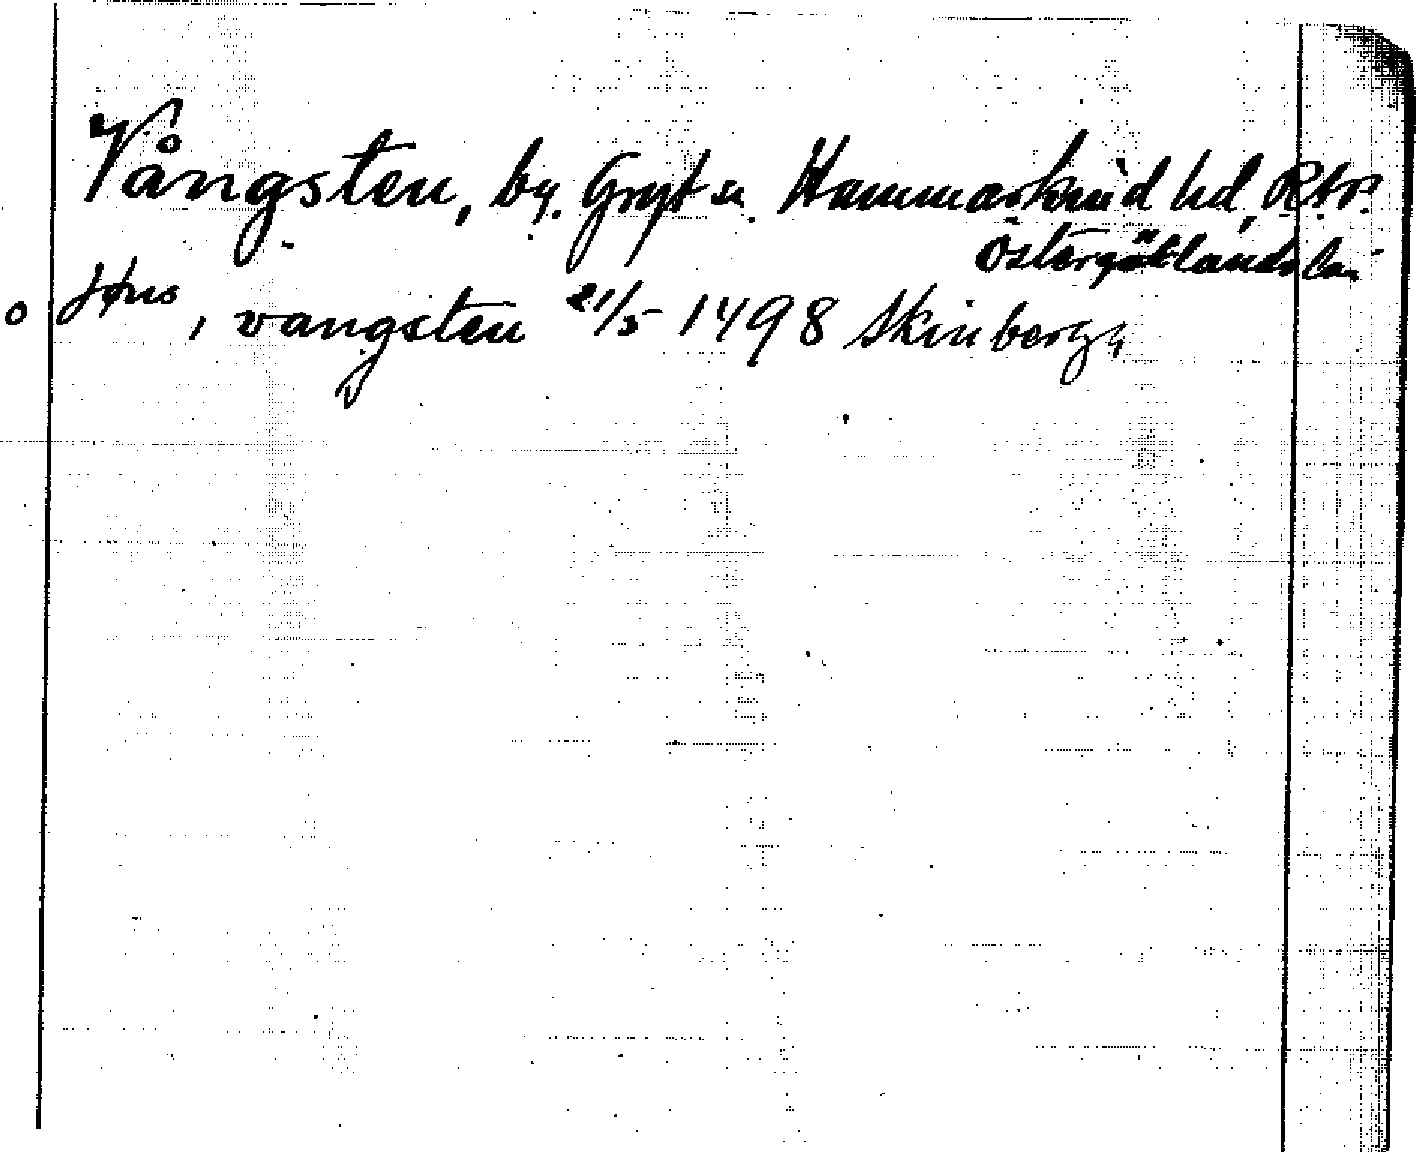 Vångsten, by. Gryt sn. Hammarkind hd,
Östergötlands län
o Jöns, vangsten 21/5 1498 Skinberga